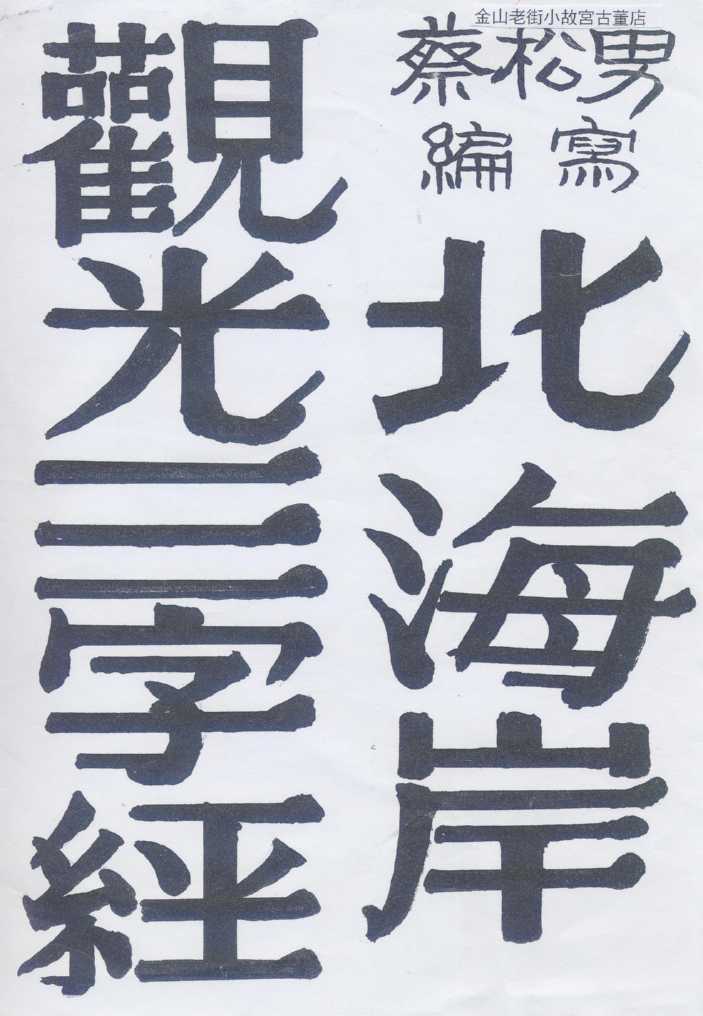 金山老街小故宮古董店
蔡松男
編寫
北海岸
觀光三字經